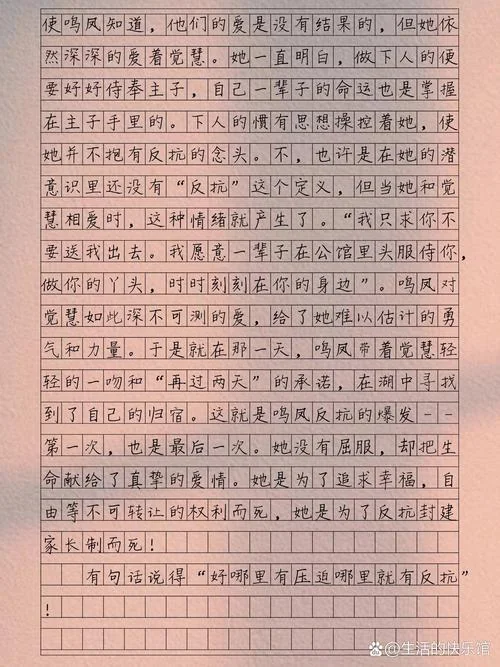 使鸣凤知道，他们的爱是没有结果的，但她依
然深深的爱着觉慧。她一直明白，做下人的便
要好好侍奉主子，自己一辈子的命运也是掌握
在主子手里的。下人的惯有思想操控着她，使
她并不抱有反抗的念头。不，也许是在她的潜
意识里还没有“反抗”这个定义，但当她和觉
慧相爱时，这种情绪就产生了。“我只求你不
要送我出去。我愿意一辈子在公馆里头服侍你，
做你的丫头，时时刻刻在你的身边”。鸣凤对
觉慧如此深不可测的爱，给了她难以估计的勇
气和力量。于是就在那一天，鸣凤带着觉慧轻
轻的一吻和“再过两天”的承诺，在湖中寻找
到了自己的归宿。这就是鸣凤反抗的爆发--
第一次，也是最后一次。她没有屈服，却把生
命献给了真挚的爱情。她是为了追求幸福，自
由等不可转让的权利而死，她是为了反抗封建
家长制而死！
有句话说得“好哪里有压迫哪里就有反抗”
！
@生活的快乐馆